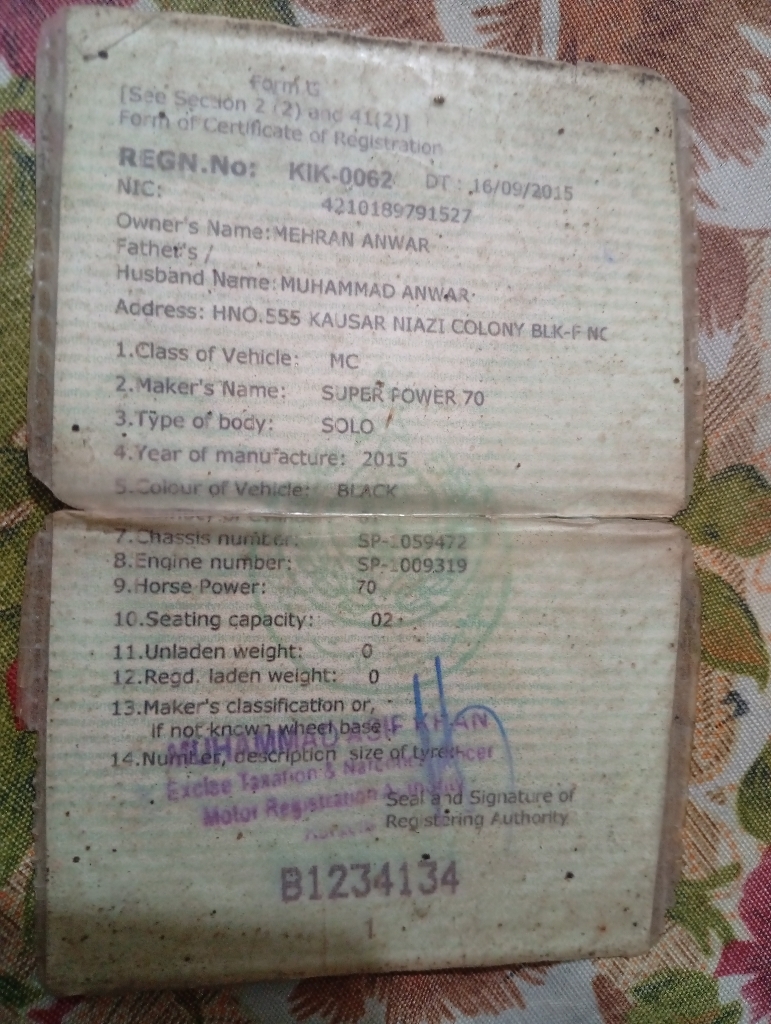 Form G
[See Section 2 (2) and 41(2)]
Form of Certificate of Registration
REGN.No: KIK-0062 DT : 16/09/2015
NIC: 4210189791527
Owner's Name: MEHRAN ANWAR
Father's /
Husband Name: MUHAMMAD ANWAR
Address: HNO.555 KAUSAR NIAZI COLONY BLK-F NC
1.Class of Vehicle: MC
2.Maker's Name: SUPER POWER 70
3.Type of body: SOLO
4.Year of manufacture: 2015
5.Colour of Vehicle: BLACK
7.Chassis number: SP-1059472
8.Engine number: SP-1009319
9.Horse Power: 70
10.Seating capacity: 02
11.Unladen weight: 0
12.Regd. laden weight: 0
13.Maker's classification or,
if not known wheel base
14.Number, description size of tyre
MUHAMMAD ASIF KHAN
Excise Taxation & Narcotics Officer
Motor Registration
Seal and Signature of
Registering Authority
B1234134
1